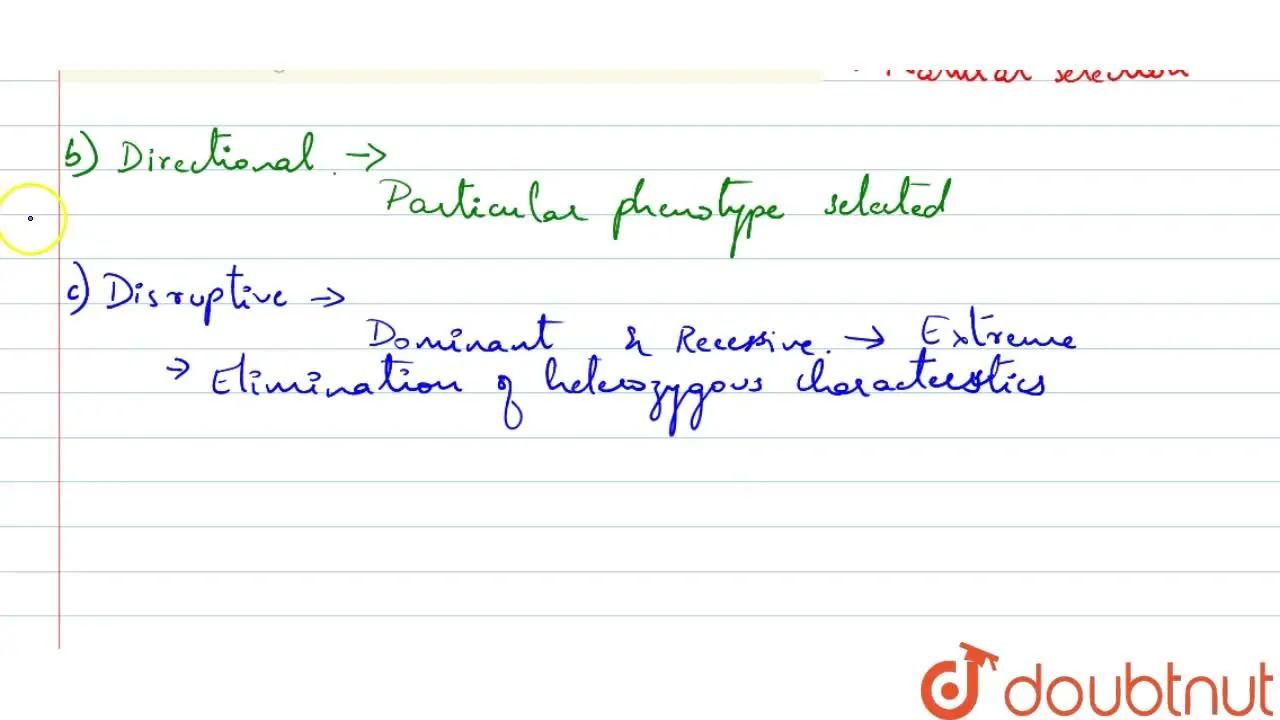 Natural selection
b) Directional →
Particular phenotype selected
c) Disruptive →
Dominant & Recessive. → Extreme
→ Elimination of heterozygous characteristics
doubtnut